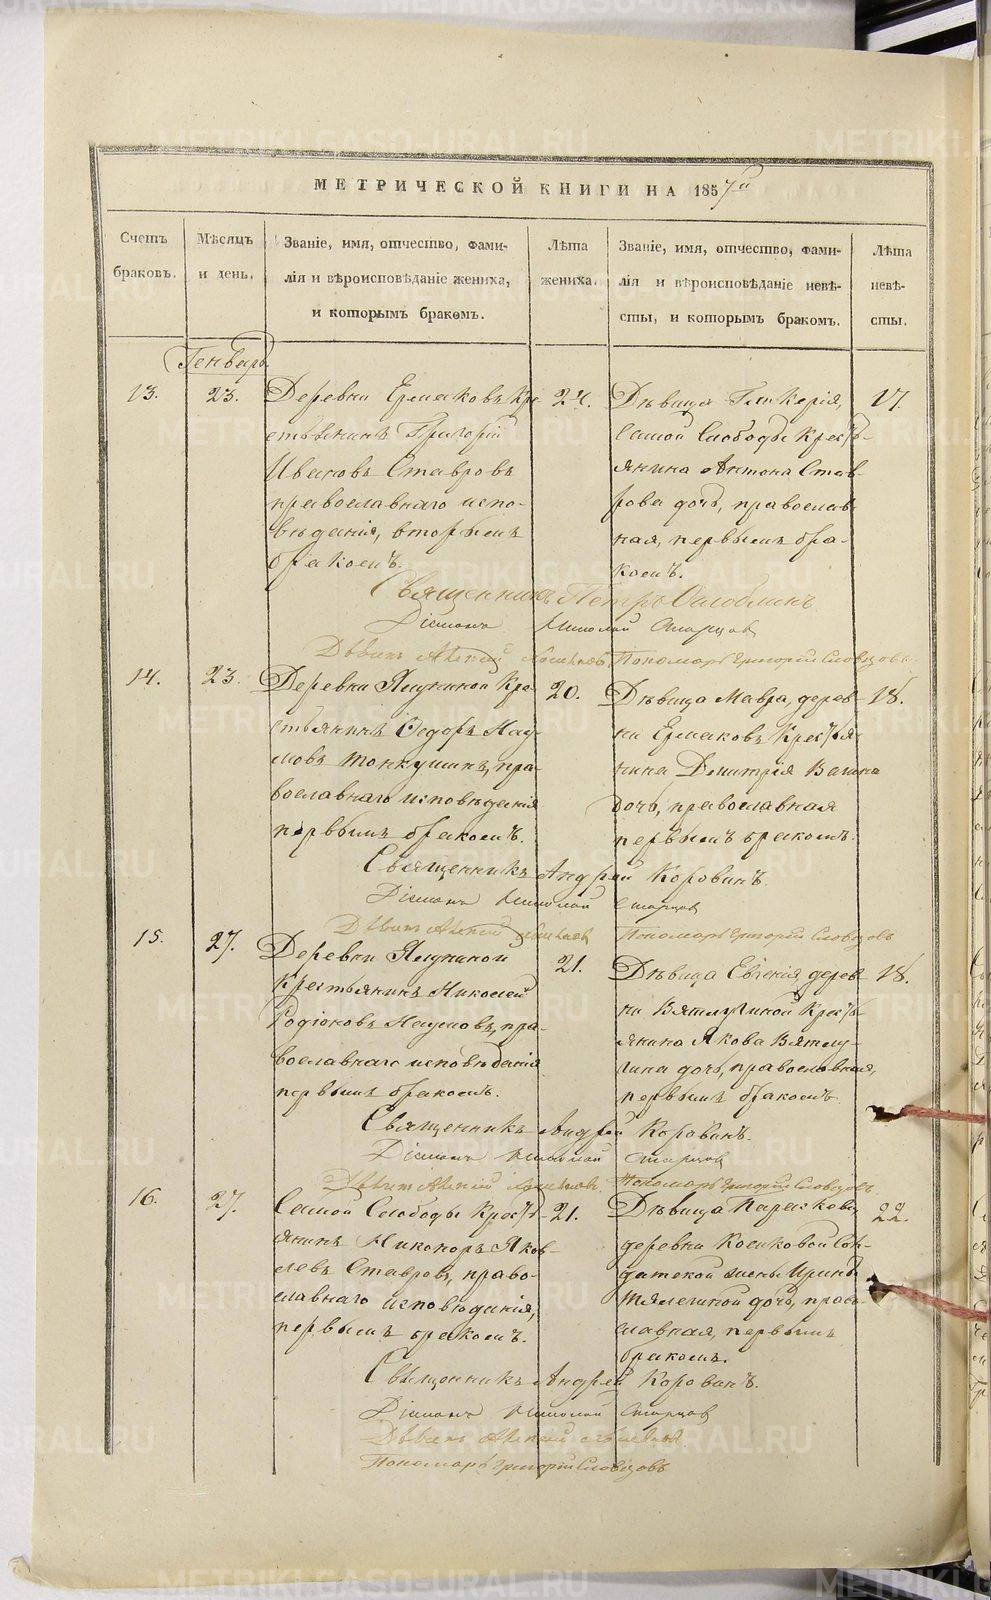 МЕТРИЧЕСКОЙ КНИГИ НА 1857й
Счетъ браковъ.
Мѣсяцъ и день.
Званіе, имя, отчество, фами-
лія и вѣроисповѣданіе жениха,
и которымъ бракомъ.
Лѣта жениха.
Званіе, имя, отчество, фами-
лія и вѣроисповѣданіе невѣ-
сты, и которымъ бракомъ.
Лѣта невѣ-
сты.
Генварь
13.
23.
Деревни Ермаковъ Кре
стьянинъ Григорій
Ивановъ Ставровъ
православнаго испо-
вѣданія, вторымъ
бракомъ.
24.
Дѣвица Гликерія,
самой Слободы Кресть-
янина Антона Став-
рова дочь, православ-
ная, первымъ бра-
комъ.
17.
Священникъ Петръ Оглоблинъ
Діаконъ Николай Старцов
Дьячекъ Пономарь Григорій Словцовъ
14.
23.
Деревни Ялуниной Кре-
стьянинъ Ѳедоръ Нау-
мовъ Тонкушинъ, пра-
вославнаго исповѣданія
первымъ бракомъ.
20.
Дѣвица Мавра, дерев-
ни Ермаковъ Крестья-
нина Димитрія Вагина
дочь, православная
первымъ бракомъ.
18.
Священникъ Андрей Коровинъ.
Діаконъ Николай Старцов
Дьячекъ Пономарь Григорій Словцовъ
15.
27.
Деревни Ялуниной
Крестьянинъ Николай
Родіоновъ Наумовъ, пра-
вославнаго исповѣданія
первымъ бракомъ.
21.
Дѣвица Евгенія дерев-
ни Вятлугиной Кресть-
янина Якова Вятлу-
гина дочь, православная,
первымъ бракомъ.
18.
Священникъ Андрей Коровинъ.
Діаконъ Николай Старцов
Дьячекъ Пономарь Григорій Словцовъ
16.
27.
Самой Слободы Кресть-
янинъ Никоноръ Яков-
левъ Ставровъ, право-
славнаго исповѣданія,
первымъ бракомъ.
21.
Дѣвица Параскева,
деревни Косиковой Сол-
датской жены Ирины
дочь, право-
славная, первымъ
бракомъ.
22.
Священникъ Андрей Коровинъ.
Діаконъ Николай Старцов
Дьячекъ
Пономарь Григорій Словцовъ
METRIKI.GASO-URAL.RU